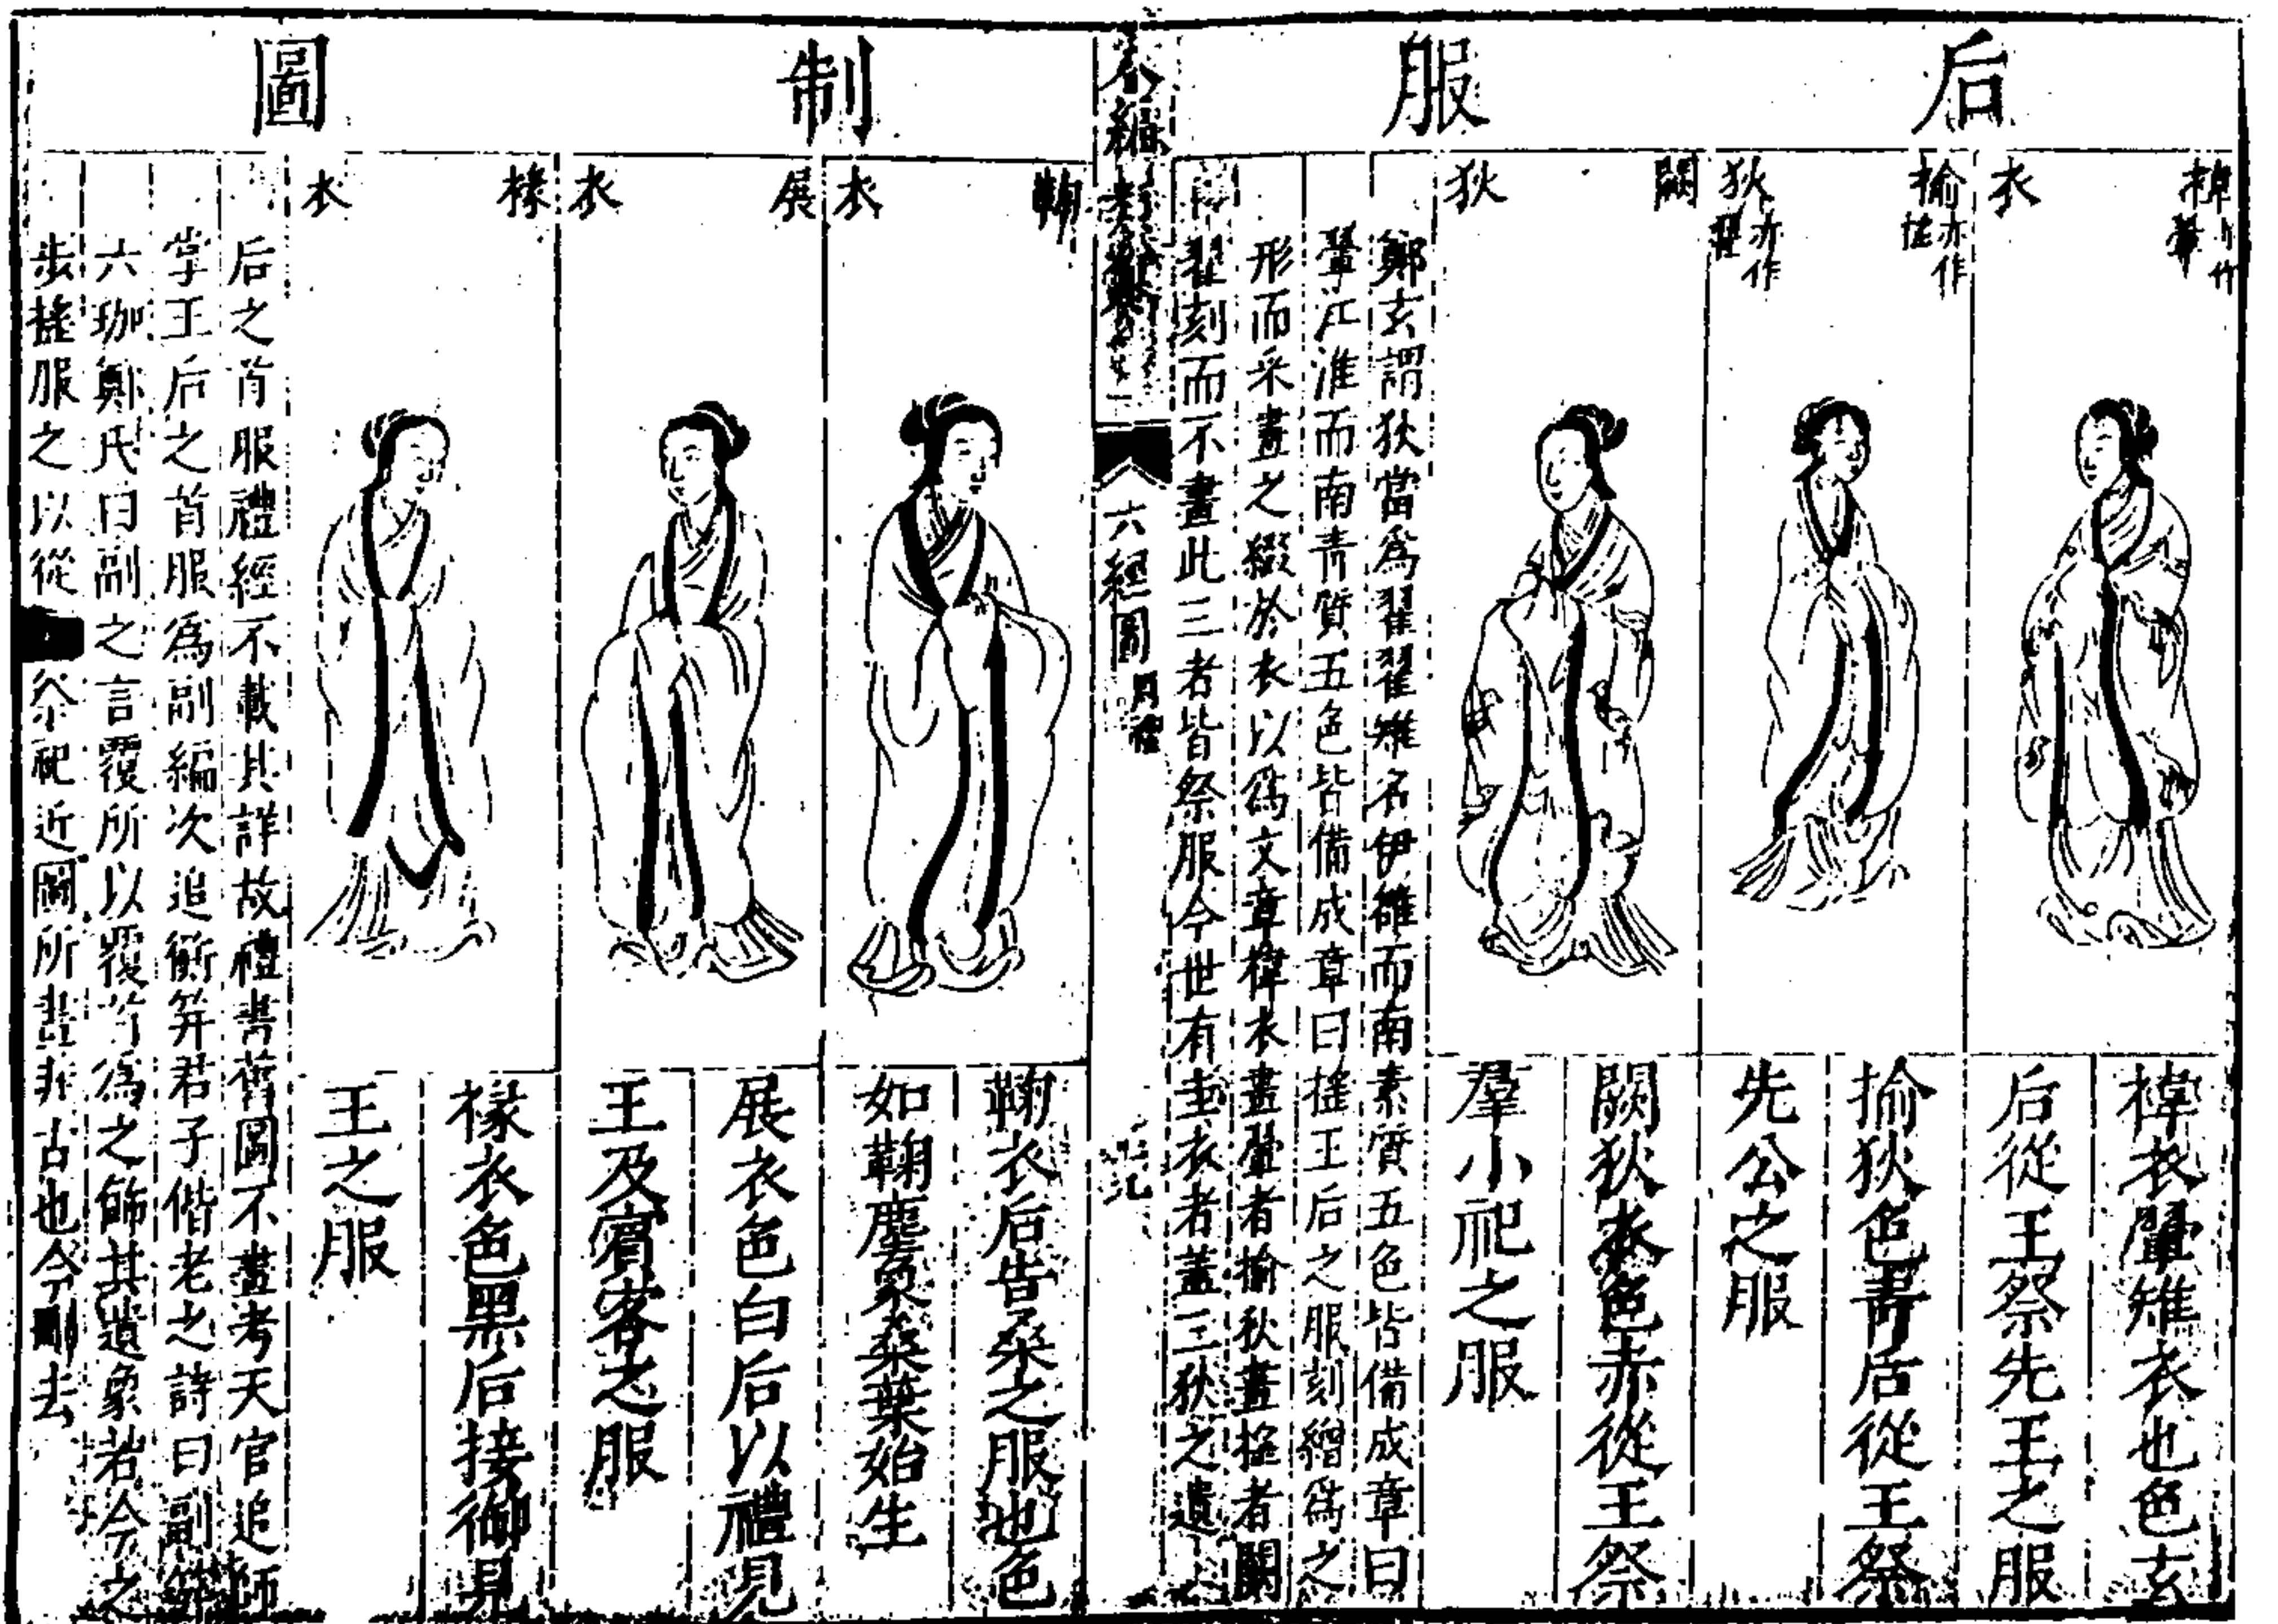 后服制圖
褘衣
榆亦作揄狄亦作翟
闕狄
褘衣翬雉衣也色玄
后從王祭先王之服
揄狄色青后從王祭
先公之服
闕狄衣色赤從王祭
羣小祀之服
鄭玄謂狄當爲翟翟雉名伊雒而南素質五色皆備成章曰
翬江淮而南青質五色皆備成章曰搖王后之服刻繒爲之
形而采畫之綴於衣以爲文章褘衣畫翬者揄狄畫搖者闕
翟刻而不畫此三者皆祭服今世有圭衣者蓋三狄之遺
六經圖
周禮
鞠衣
展衣
褖衣
鞠衣后告桑之服也色
如鞠塵象桑葉始生
展衣色白后以禮見
王及賓客之服
褖衣色黑后接御見
王之服
后之首服禮經不載其詳故禮書舊圖不畫考天官追師
掌王后之首服爲副編次追衡筓君子偕老之詩曰副筓
六珈鄭氏曰副之言覆所以覆首爲之飾其遺象若今之
步搖服之以從 祭祀近圖所畫非古也今刪去